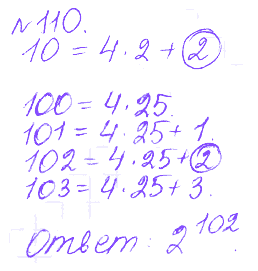 №110.
10 = 4·2+2
100 = 4·25.
101 = 4·25+1.
102 = 4·25+2
103 = 4·25+3.
Ответ: 2^102.